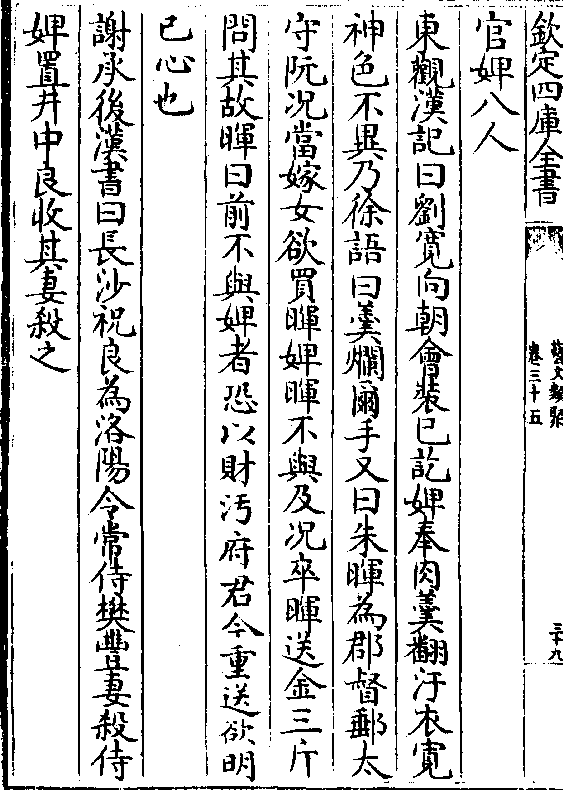 欽定四庫全書
藝文類聚
卷三十五
三十九
官婢八人
東觀漢記曰劉寛向朝會裝已訖婢奉肉羮翻汙衣寛
神色不異乃徐語曰羮爛爾手又曰朱暉為郡督郵太
守阮况當嫁女欲買暉婢暉不與及况卒暉送金三斤
問其故暉曰前不與婢者恐以財汚府君今重送欲明
已心也
謝承後漢書曰長沙祝良為洛陽令常侍樊豐妻殺侍
婢置井中良收其妻殺之